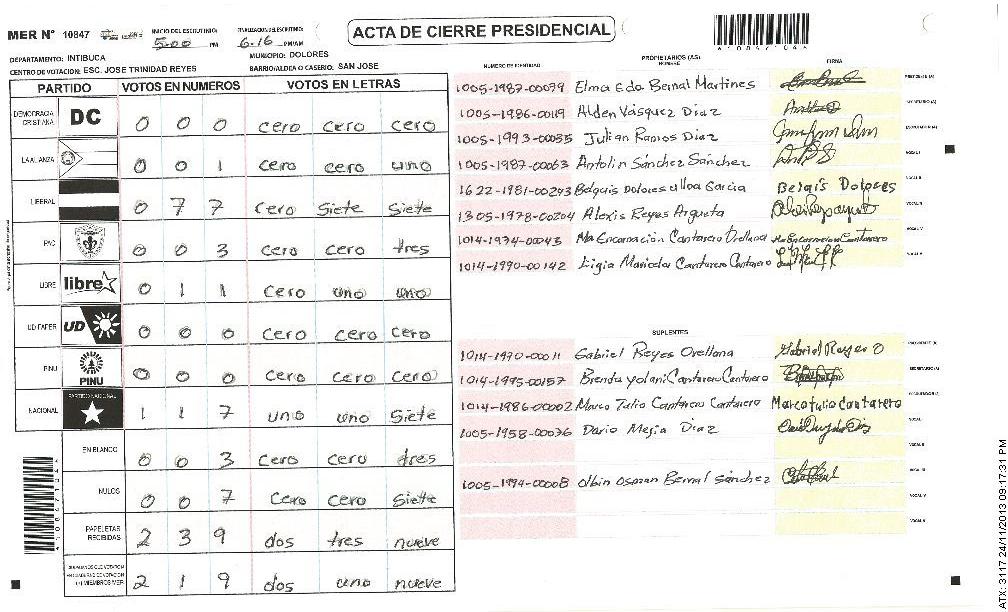 MER N° 10847
INICIO DEL ESCRUTINIO: 5:00 PM
FINALIZACION DEL ESCRUTINIO: 6:16 PM/AM
ACTA DE CIERRE PRESIDENCIAL
DEPARTAMENTO: INTIBUCA
MUNICIPIO: DOLORES
CENTRO DE VOTACION: ESC. JOSE TRINIDAD REYES
BARRIO/ALDEA O CASERIO: SAN JOSE
PARTIDO VOTOS EN NUMEROS VOTOS EN LETRAS
DEMOCRACIA CRISTIANA DC 0 0 0 cero cero cero
LA ALIANZA 0 0 1 cero cero uno
LIBERAL 0 7 7 cero Siete Siete
PAC 0 0 3 cero cero tres
LIBRE libre 0 1 1 cero uno uno
UD FAPER UD 0 0 0 cero cero cero
PINU PINU 0 0 0 cero cero cero
NACIONAL PARTIDO NACIONAL 1 1 7 uno uno Siete
EN BLANCO 0 0 3 cero cero tres
NULOS 0 0 7 cero cero Siete
PAPELETAS RECIBIDAS 2 3 9 dos tres nueve
CIUDADANOS QUE VOTARON EN CUADERNO DE VOTACION (+) MIEMBROS MER 2 1 9 dos uno nueve
NUMERO DE IDENTIDAD PROPIETARIOS (AS): NOMBRE FIRMA
1005-1987-00079 Elma Edo Bernal Martines PRESIDENTE (A)
1005-1986-00119 Alden Vásquez Diaz SECRETARIO (A)
1005-1993-00035 Julian Ramos Diaz ESCRUTADOR (A)
1005-1987-00063 Antolin Sánchez Sánchez VOCAL I
1622-1981-00293 Belquis Dolores ulloa Garcia VOCAL II
1305-1978-00204 Alexis Reyes Argueta VOCAL III
1014-1974-00043 Ma Encarnación Cantarero Orellana Ma Encarnacion Cantarero VOCAL IV
1014-1990-00142 Ligia Maricela Cantarero Cantarero VOCAL V
SUPLENTES
1014-1970-00011 Gabriel Reyes Orellana Gabriel Reyes O PRESIDENTE (A)
1014-1995-00157 Brenda yolani Cantarero Cantarero SECRETARIO (A)
1014-1986-00002 Marco Tulio Cantarero Cantarero Marcotulio Cantarero ESCRUTADOR (A)
1005-1958-00036 Dario Mejia Diaz VOCAL I
VOCAL II
1005-1994-00008 Olbin Osman Bernal Sánchez VOCAL III
VOCAL IV
VOCAL V
ATX: 3117 24/11/2013 09:17:31 PM